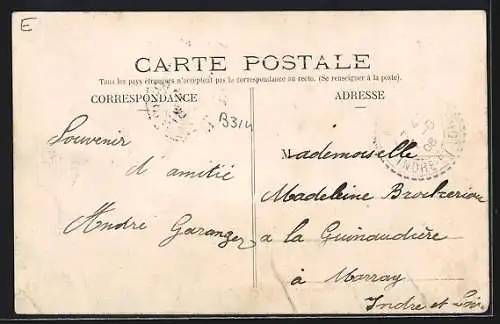 E
CARTE POSTALE
Tous les pays étrangers n'acceptent pas la correspondance au recto. (Se renseigner à la poste).
CORRESPONDANCE
ADRESSE
B314
Souvenir
d'amitié
André Garanger
Mademoiselle
Madeleine
a la Guinaudière
à Marray
Indre et Loire
INDRE